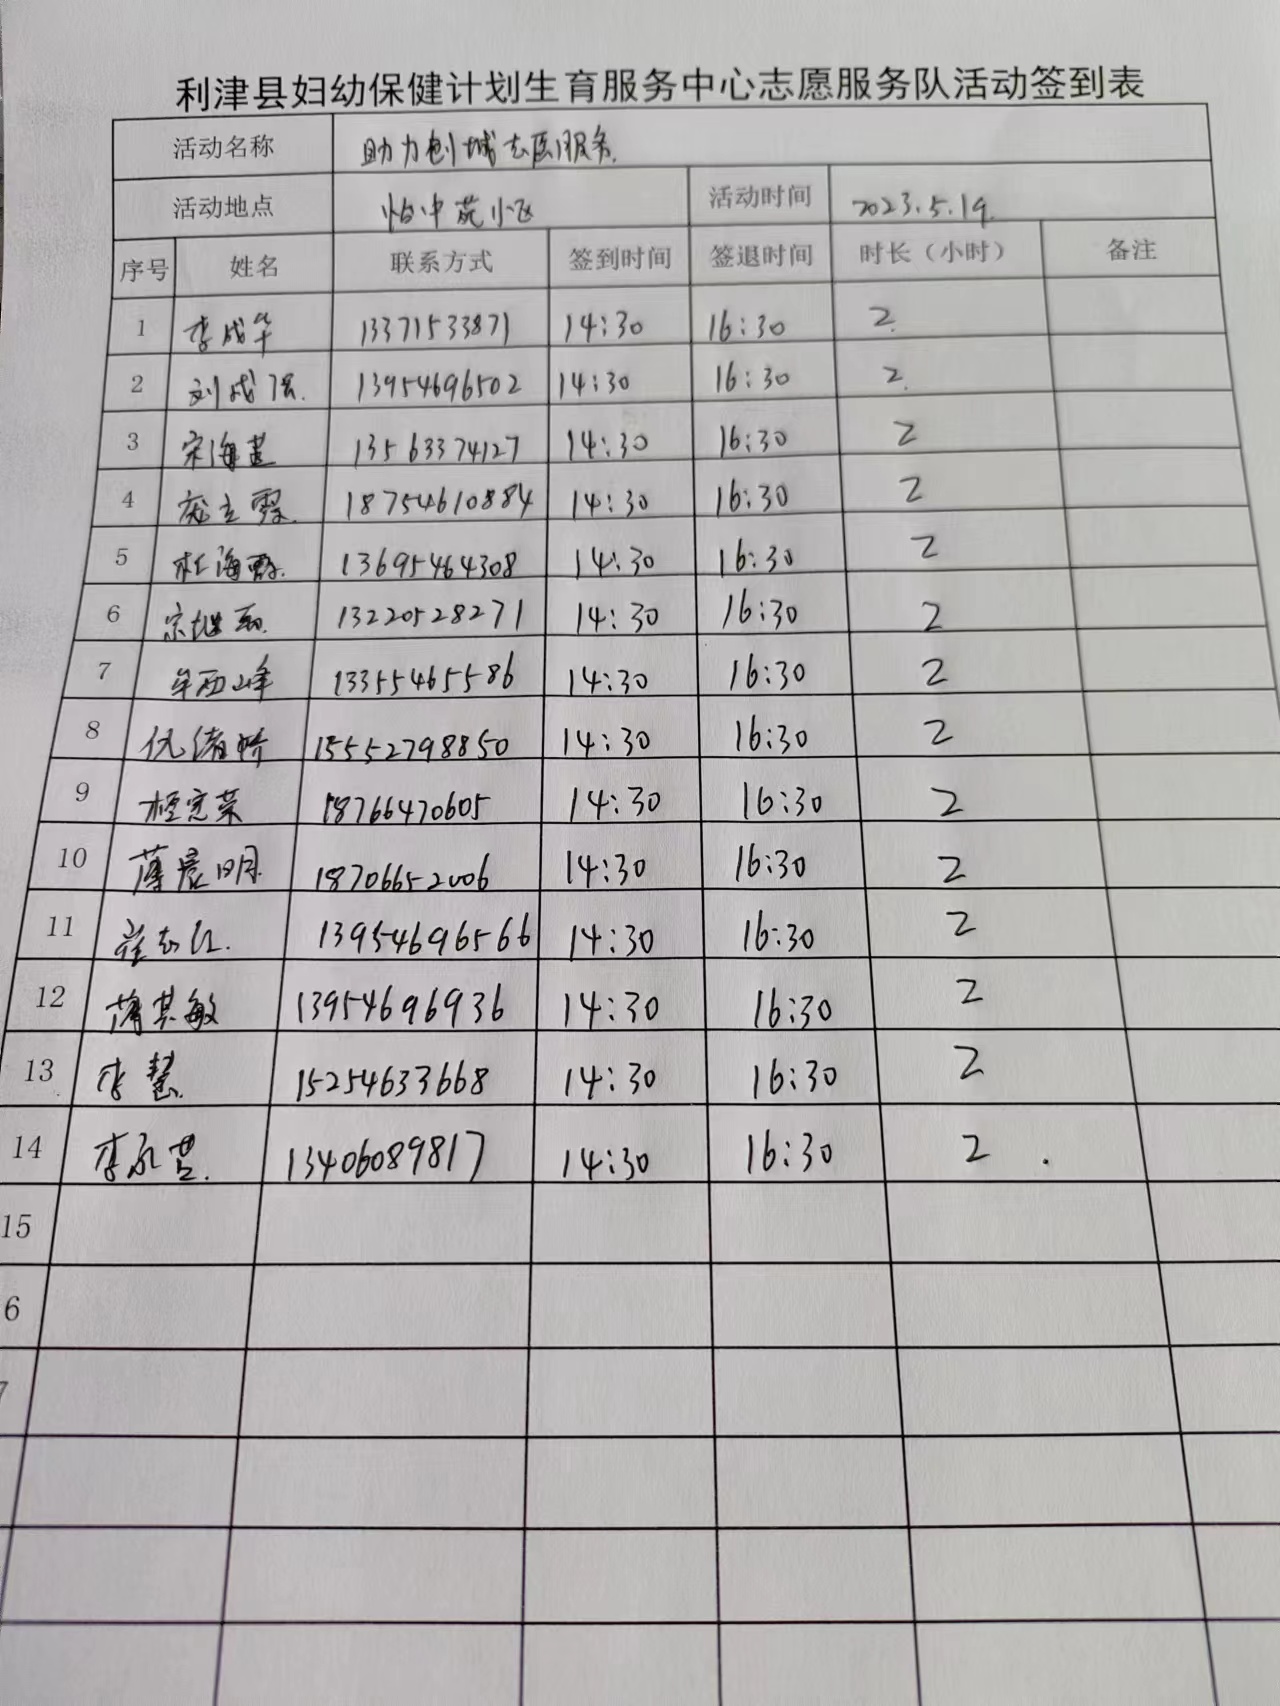 利津县妇幼保健计划生育服务中心志愿服务队活动签到表
活动名称 助力创城志愿服务.
活动地点 怡中苑小区 活动时间 2023.5.19.
序号 姓名 联系方式 签到时间 签退时间 时长（小时） 备注
1 李成华 13371533871 14:30 16:30 2.
2 刘成 13954696502 14:30 16:30 2.
3 宋海 13563374127 14:30 16:30 2
4 立霞. 18754610884 14:30 16:30 2
5 杜海霞. 13695464308 14:30 16:30 2
6 宗继 13220528271 14:30 16:30 2
7 牟西峰 13355465586 14:30 16:30 2
8 倪绪娇 15552798850 14:30 16:30 2
9 程宪荣 18766470605 14:30 16:30 2
10 薄晨明 18706652006 14:30 16:30 2
11 崔志红. 13954696566 14:30 16:30 2
12 薄其敏 13954696936 14:30 16:30 2
13 李慧 15254633668 14:30 16:30 2
14 李永 13406089817 14:30 16:30 2 .
15
6
7